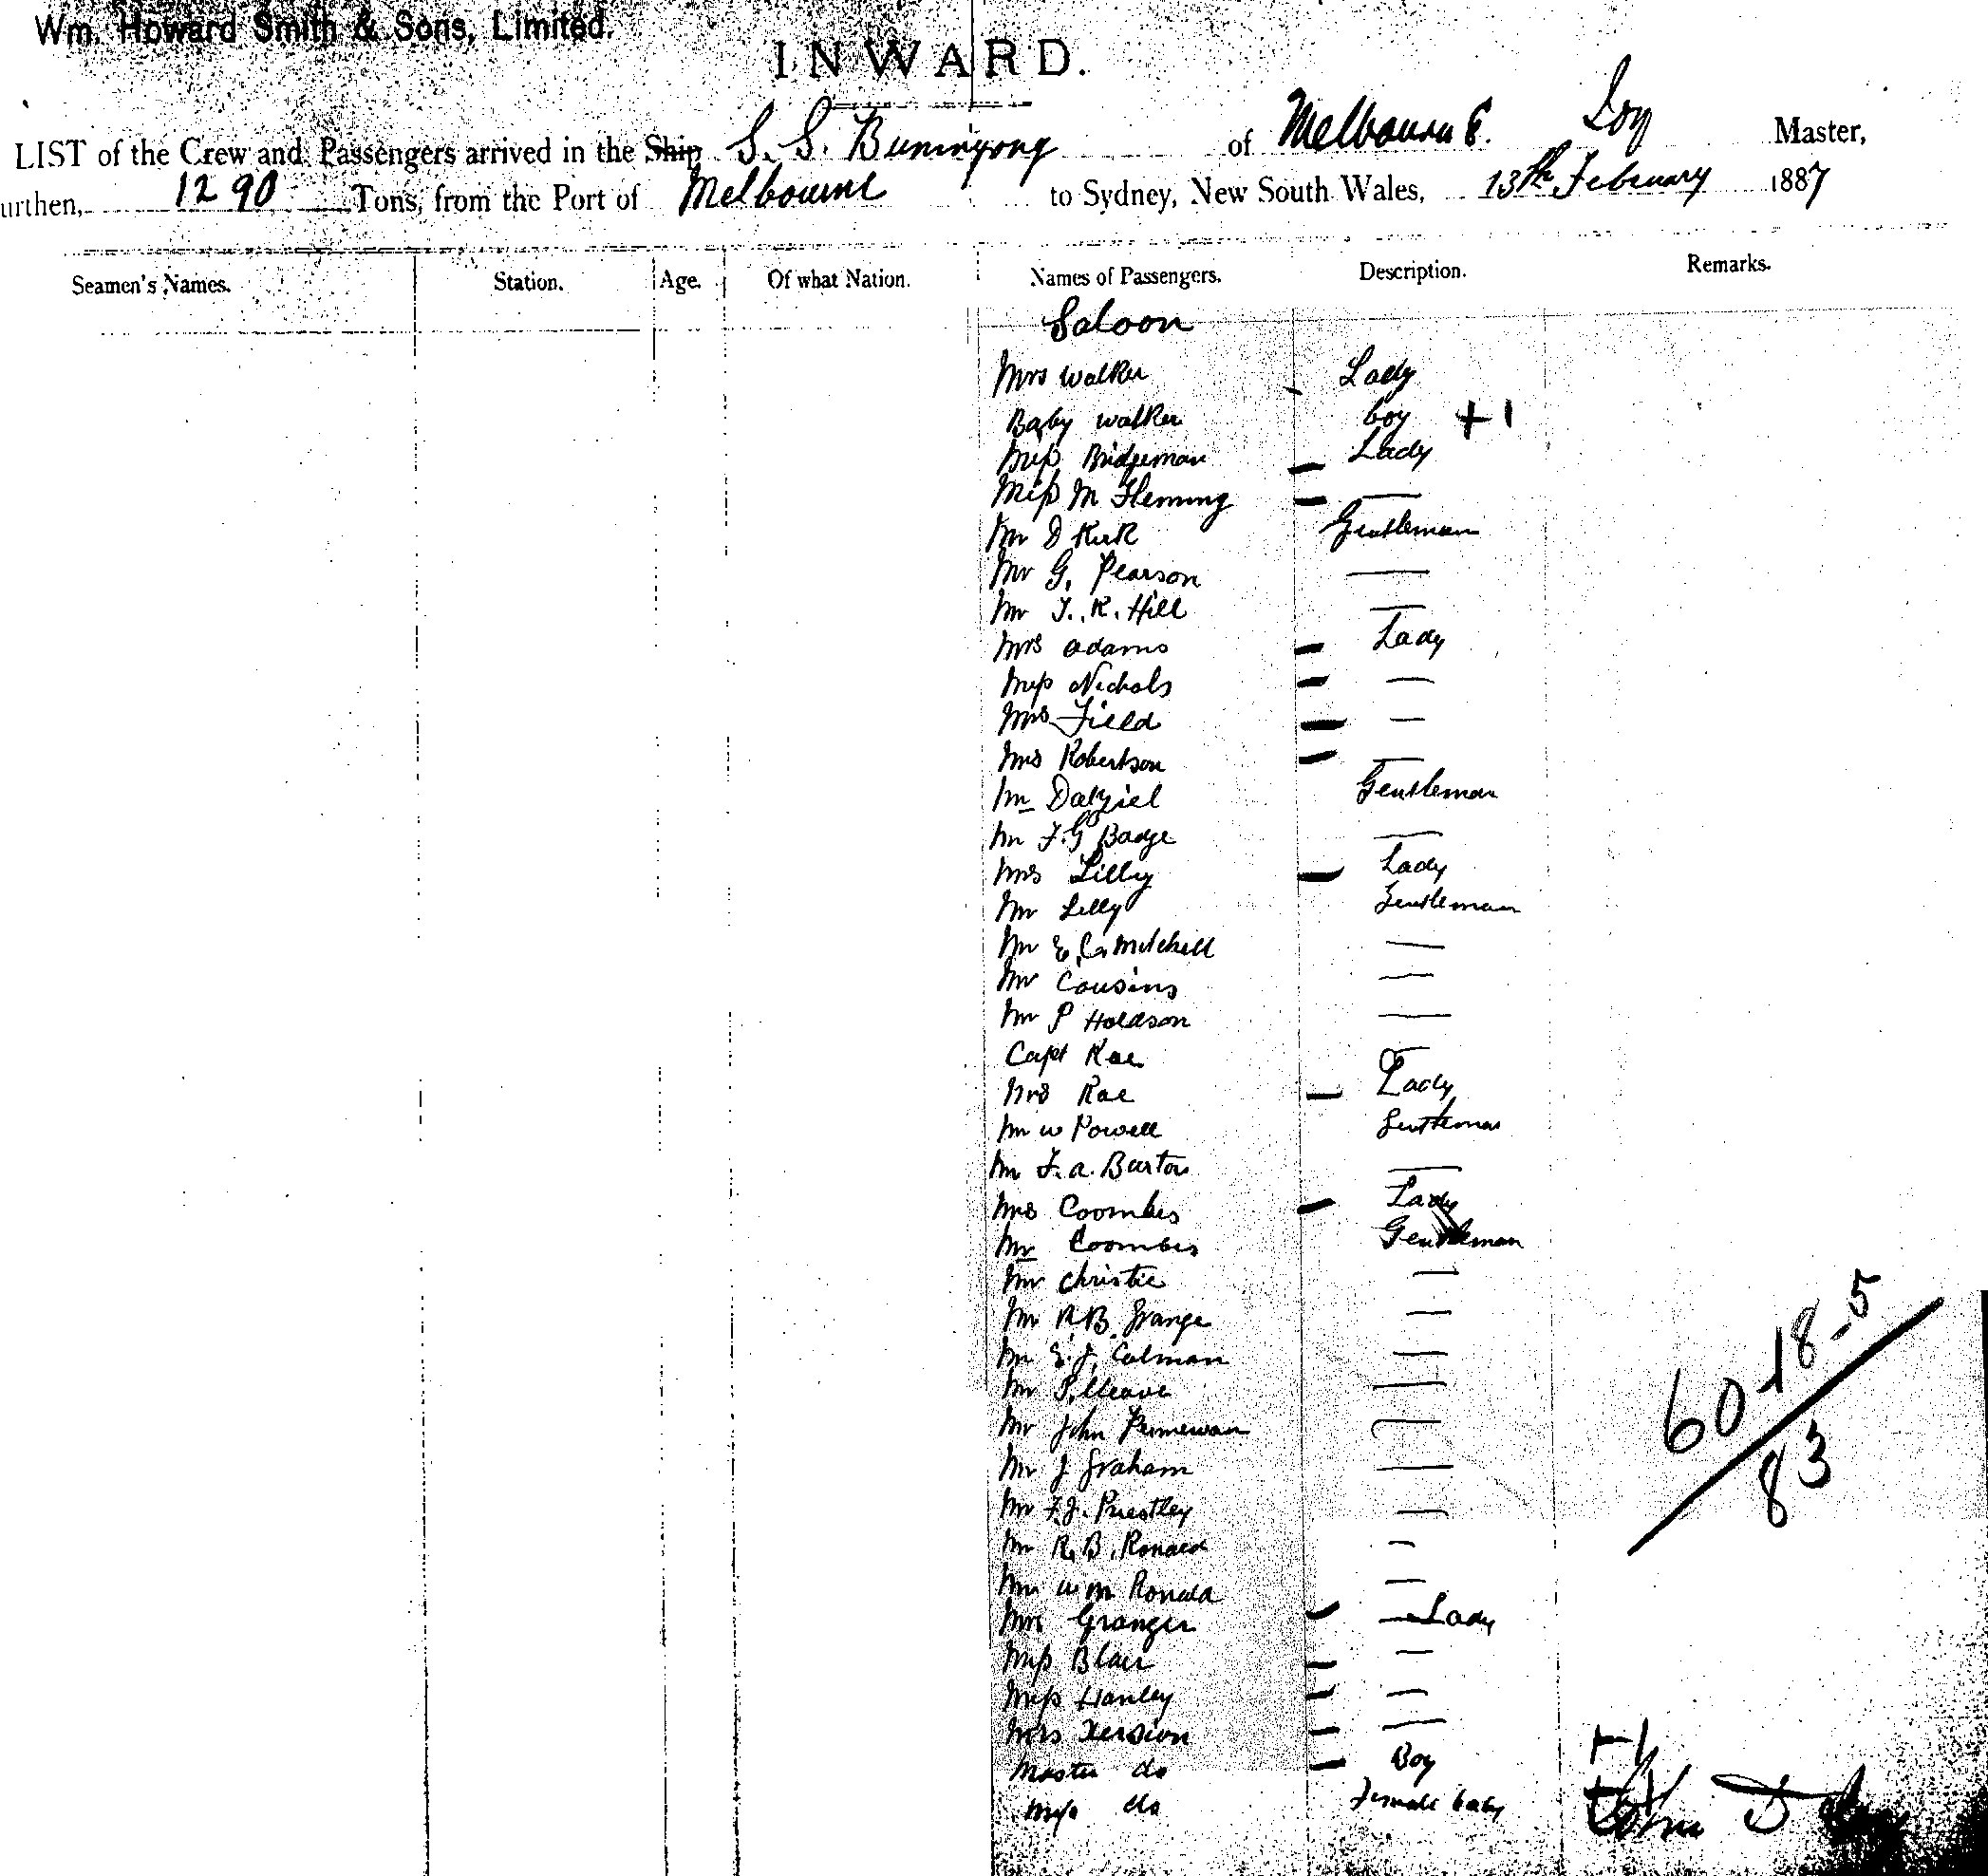 Wm. Howard Smith & Sons, Limited.
INWARD.
LIST of the Crew and Passengers arrived in the Ship S. S. Buninyong of Melbourne. Master,
urthen, 1290 Tons, from the Port of Melbourne to Sydney, New South Wales, 13th February 1887
Seamen's Names. Station. Age. Of what Nation. Names of Passengers. Description. Remarks.
Saloon
Mrs Walker Lady
Baby Walker boy +1
Miss Bridgeman Lady
Miss M Fleming —
Mr D Kirk Gentleman
Mr G. Pearson —
Mr T. R. Hill —
Mrs Adams Lady
Miss Nichols —
Mrs Field —
Mrs Robertson —
Mr Dalziel Gentleman
Mr F. G Badge —
Mrs Lilly Lady
Mr Lilly Gentleman
Mr E. C. Mitchell —
Mr Cousins —
Mr P Holdson —
Capt Rae —
Mrs Rae Lady
Mr W Powell Gentleman
Mr F. A. Barton —
Mrs Coombes Lady
Mr Coombes Gentleman
Mr Christie —
Mr R B. Grange —
Mr E. J. Colman —
Mr —
Mr John Permewan —
Mr J Graham —
Mr F. J. Priestley —
Mr R. B. Ronald —
Mr W M Ronald —
Mrs Granger — Lady
Miss Blair —
Miss Hanley —
Mrs —
Master do Boy
Miss do Female baby
60 18-5
83
John